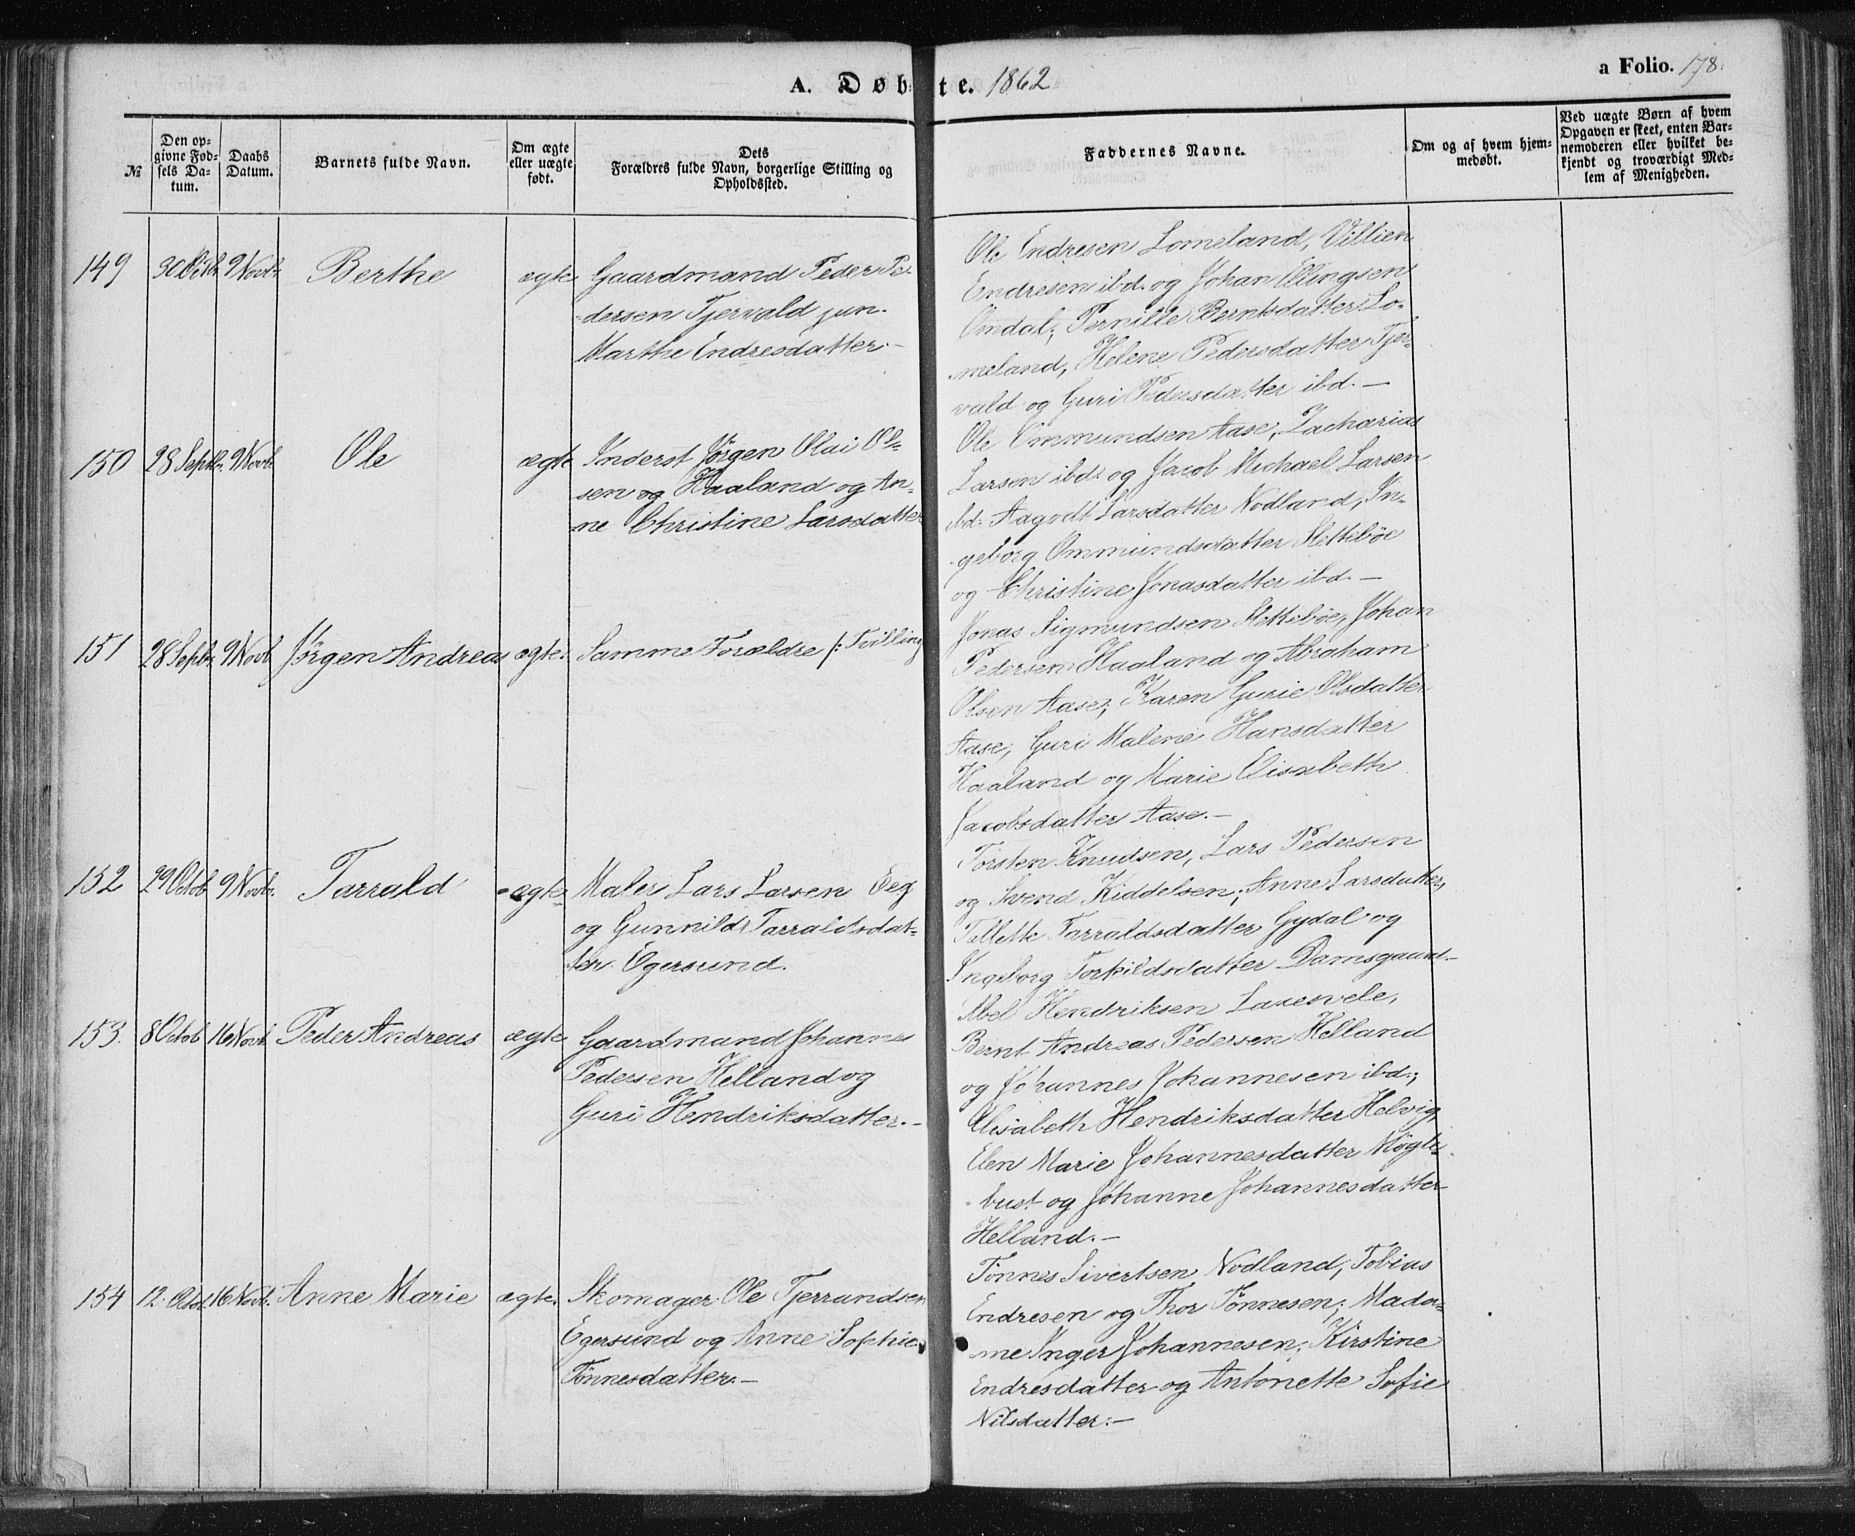 A. Døbte. 1862
a Folio. 178.
№
Den op-
givne Fød-
sels Da-
tum.
Daabs
Datum.
Barnets fulde Navn.
Om ægte
eller uægte
født.
Dets
Forældres fulde Navn, borgerlige Stilling og
Opholdssted.
Faddernes Navne.
Om og af hvem hjem-
medøbt.
Ved uægte Børn af hvem
Opgaven er skeet, enten Bar-
nemoderen eller hvilket be-
kjendt og troværdigt Med-
lem af Menigheden.
149 30 Octb. 9 Novb. Berthe ægte
Gaardmand Peder Pe-
dersen Tjervald jun.
Marthe Endresdatter.-
Ole Endresen Lomeland, Villien
Endresen ibd. og Johan Ellingsen
Omdal; Pernille Berntsdatter Lo-
meland, Helene Pedersdatter Tjer-
vald og Guri Pedersdatter ibd.-
150 28 Septbr. 9 Novb. Ole ægte
Inderst Jørgen Olai Ol-
sen og Haaland og An-
ne Christine Larsdatter
Ole Ommundsen Aase, Zacharias
Larsen ibd. og Jacob Michael Larsen
ibd. Aagodt Larsdatter Nodland, In-
geborg Ommundsdatter Slettebøe
og Christine Jonasdatter ibd.-
151 28 Septbr. 9 Novb. Jørgen Andreas ægte.
Samme Forældre /: Tvilling
Jonas Sigmundsen Slettebøe, Johan
Pedersen Haaland og Abraham
Olsen Aase; Karen Gurie Olsdatter
Aase, Guri Malene Hansdatter
Haaland og Marie Elisabeth
Jacobsdatter Aase.-
152 29 Octob. 9 Novb. Tarrald ægte
Maler Lars Larsen Eeg
og Gunnild Tarraldsdat-
ter Egersund.
Torsten Knudsen, Lars Pedersen
og Svend Kiddelsen; Anne Larsdatter,
Tallette Tarraldsdatter Gydal og
Ingeborg Torkildsdatter Damsgaard.-
153. 8 Octob 16 Novb. Peder Andreas ægte
Gaardmand Johannes
Pedersen Helland og
Guri Hendriksdatter.-
Abel Hendriksen Laxesvele,
Bernt Andreas Pedersen Helland
og Johannes Johannesen ibd.;
Elisabeth Hendriksdatter Helvig,
Elen Marie Johannesdatter Møgle-
bust og Johanne Johannesdatter
Helland.-
154 12. Octob. 16 Novb. Anne Marie ægte.
Skomager Ole Tjerrandsen
Egersund og Anne Sophie
Tønnesdatter.-
Tønnes Sivertsen Nodland, Tobias
Endresen og Thor Tønnesen; Mada-
me Inger Johannesen, Kirstine
Endresdatter og Antonette Sofie
Nilsdatter.-